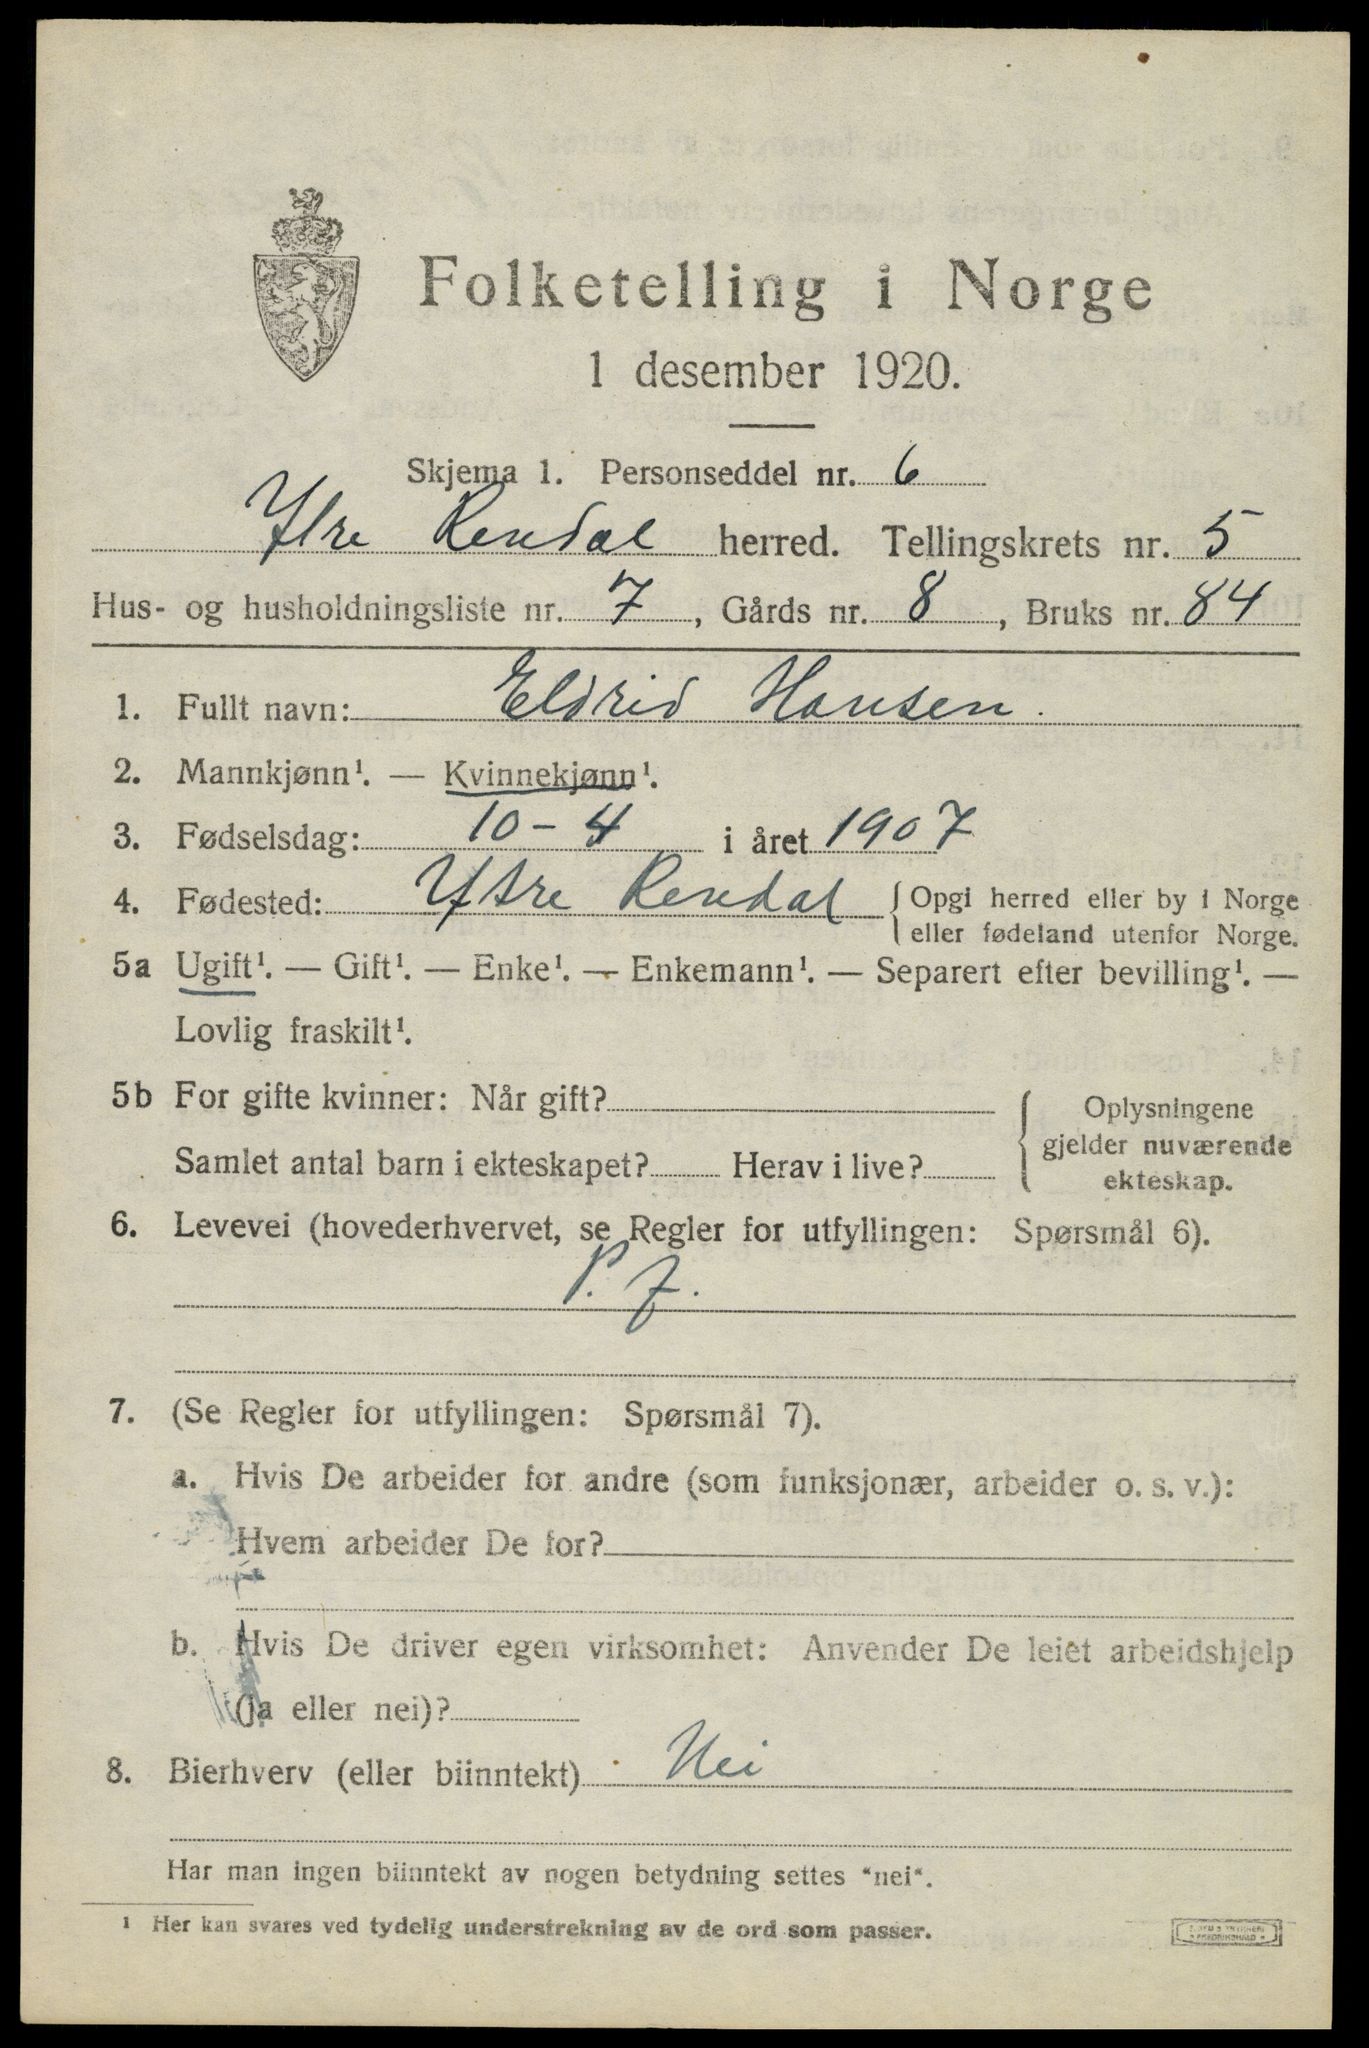 Folketelling i Norge
1 desember 1920.
Skjema 1. Personseddel nr. 6
Ytre Rendal herred. Tellingskrets nr. 5
Hus- og husholdningsliste nr. 7, Gårds nr. 8, Bruks nr. 84
1. Fullt navn: Eldrid Hansen.
2. Mannkjønn¹. — Kvinnekjønn¹.
3. Fødselsdag: 10-4 i året 1907
4. Fødested: Ytre Rendal { Opgi herred eller by i Norge
eller fødeland utenfor Norge.
5a Ugift¹. — Gift¹. — Enke¹. — Enkemann¹. — Separert efter bevilling¹. —
Lovlig fraskilt¹.
5b For gifte kvinner: Når gift?
Samlet antal barn i ekteskapet? Herav i live?
{ Oplysningene
gjelder nuværende
ekteskap.
6. Levevei (hovederhvervet, se Regler for utfyllingen: Spørsmål 6).
P. f.
7. (Se Regler for utfyllingen: Spørsmål 7).
a. Hvis De arbeider for andre (som funksjonær, arbeider o. s. v.):
Hvem arbeider De for?
b. Hvis De driver egen virksomhet: Anvender De leiet arbeidshjelp
(ja eller nei)?
8. Bierhverv (eller biinntekt) Nei
Har man ingen biinntekt av nogen betydning settes "nei".
¹ Her kan svares ved tydelig understrekning av de ord som passer.